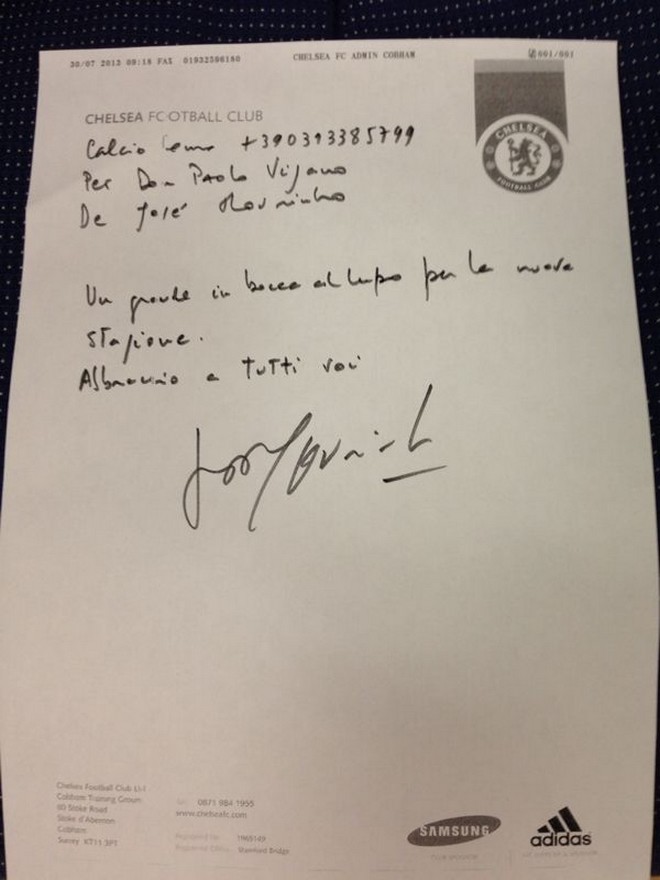 30/07 2013 09:18 FAX 01932596180 CHELSEA FC ADMIN COBHAM 001/001
CHELSEA FOOTBALL CLUB
CHELSEA
FOOTBALL CLUB
Calcio +390393385799
Per Don Paolo Viganò
De José Mourinho
Un grande in bocca al lupo per la nuova
stagione.
Abbraccio a tutti voi
José Mourinho
Chelsea Football Club Ltd
Cobham Training Ground
60 Stoke Road
Stoke d'Abernon
Cobham
Surrey KT11 3PT
0871 984 1955
www.chelseafc.com
1965149
Registered Office Stamford Bridge
SAMSUNG
adidas